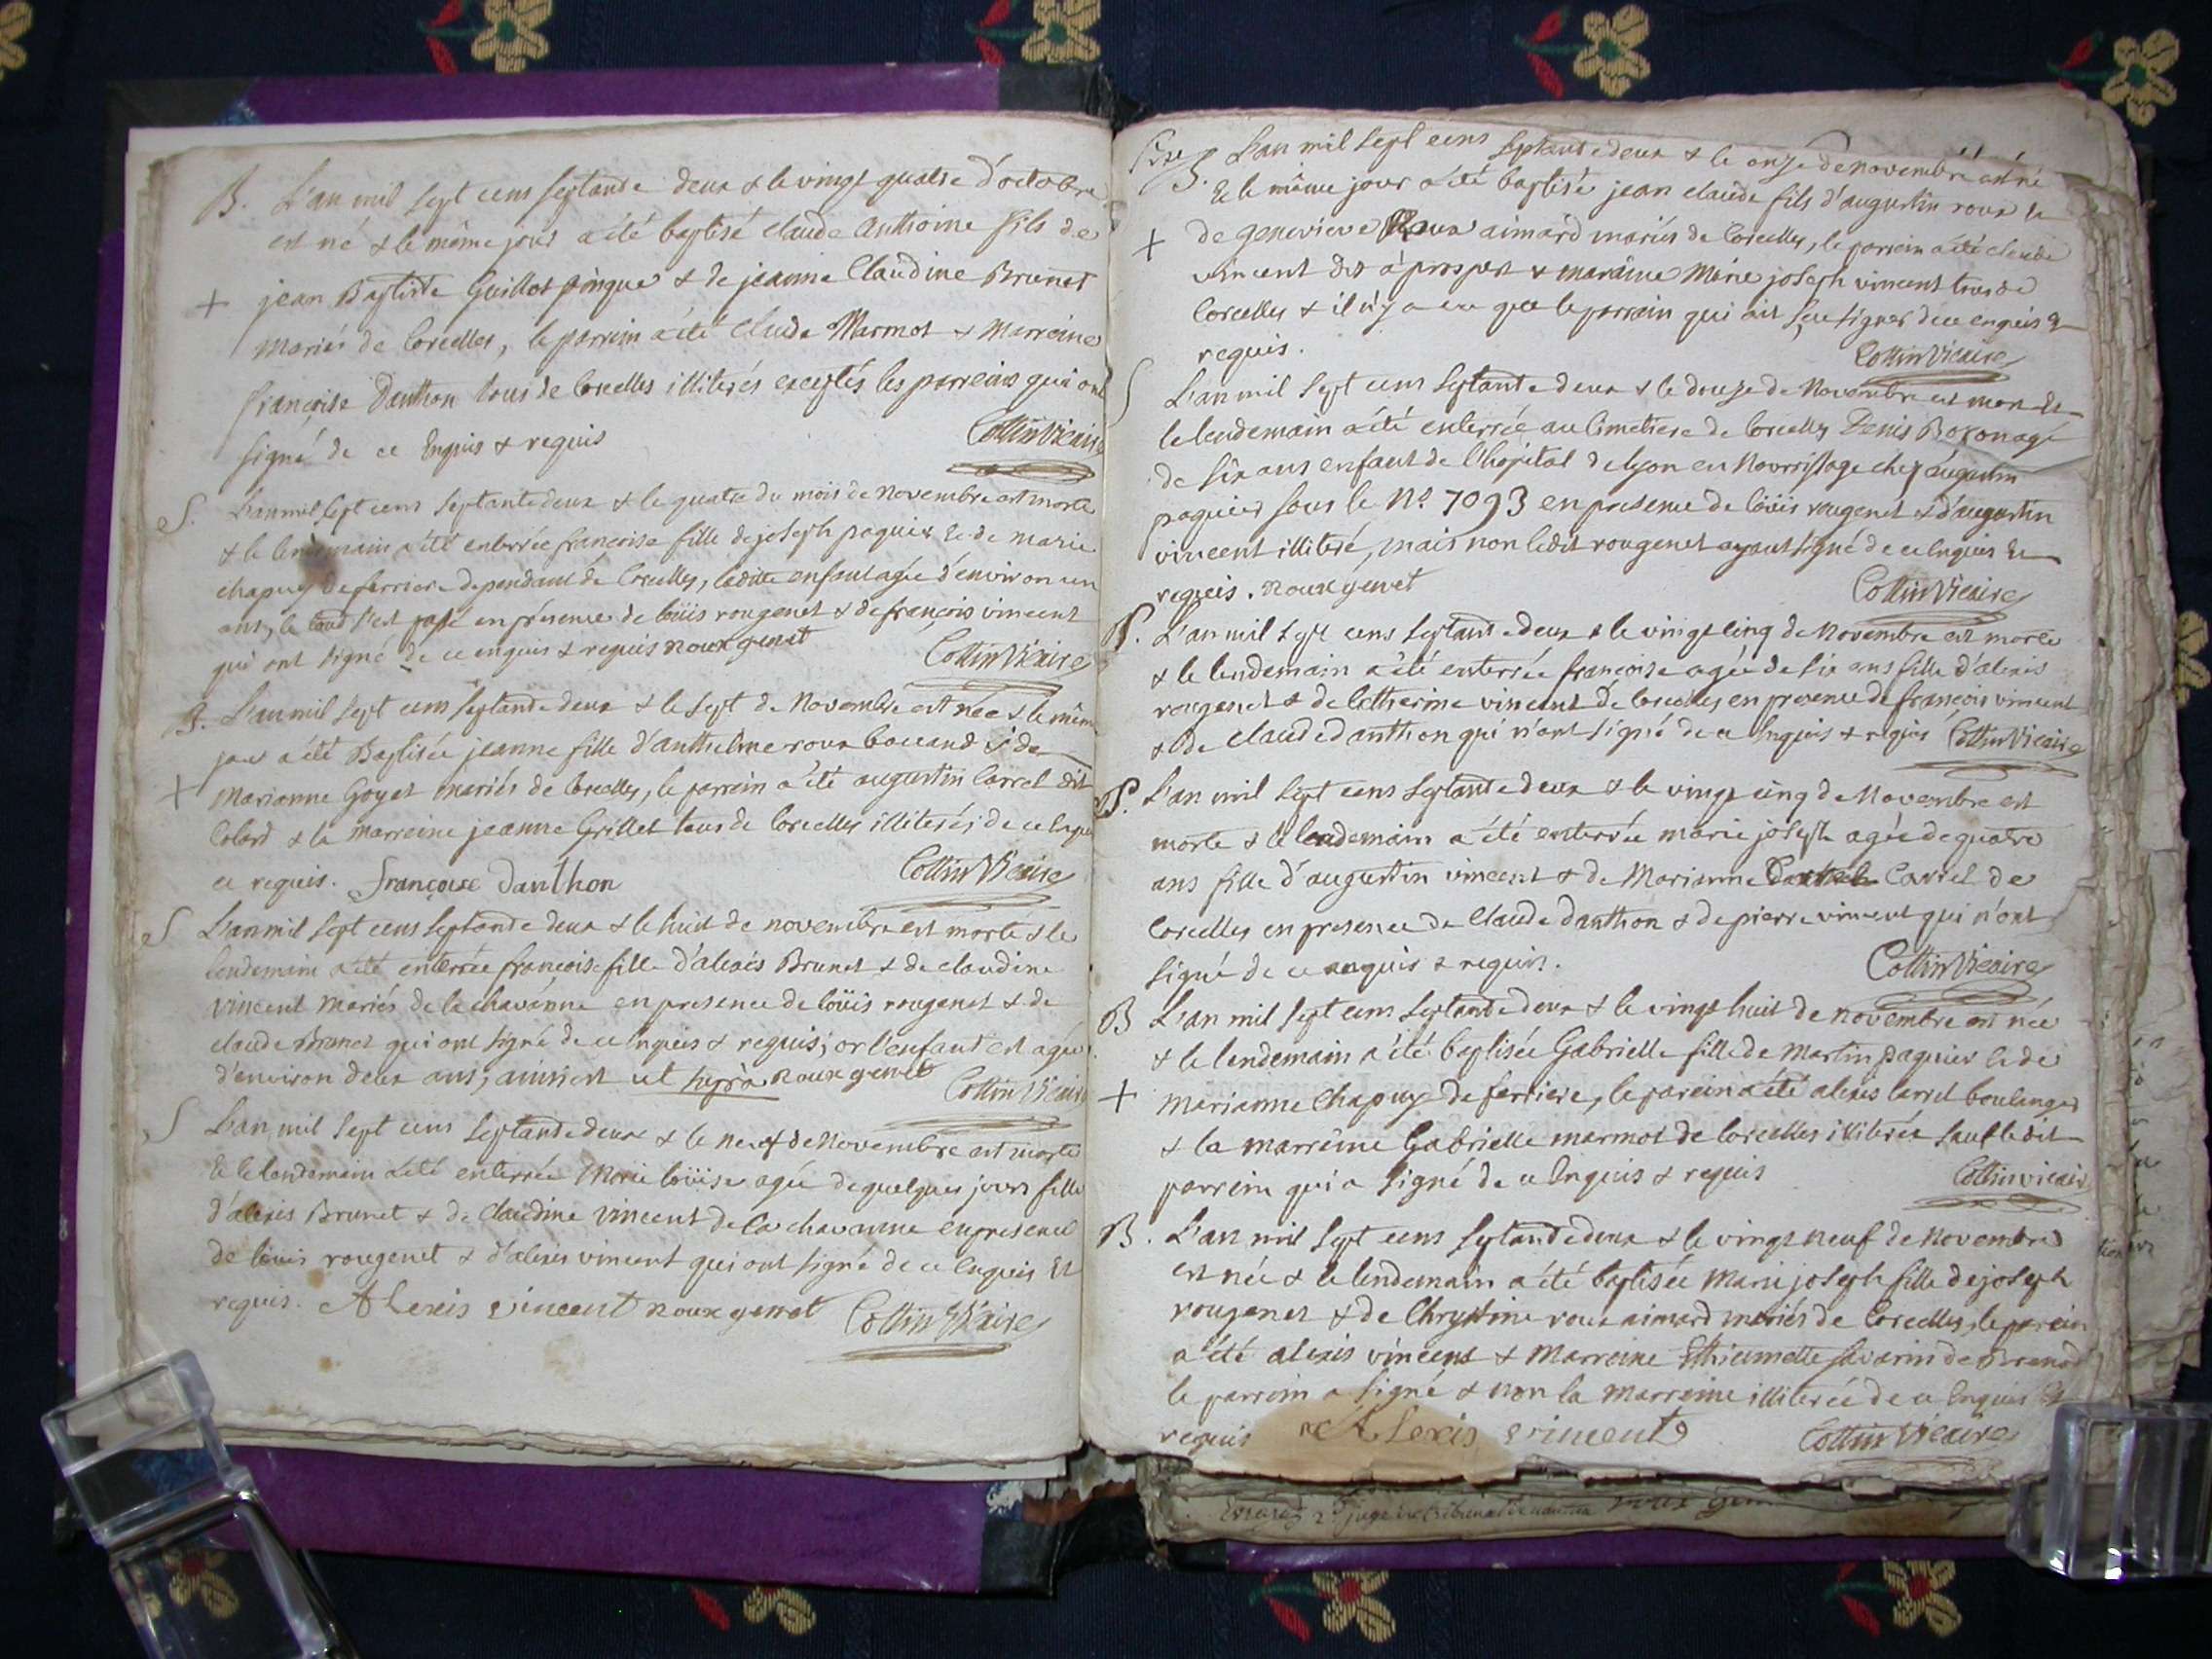 B. L'an mil sept cens septante deux & le vingt quatre d'octobre
est né & le même jour a été baptisé claude Anthoine fils de
+ jean Baptiste Guillot pingue & de jeanne Claudine Brunet
mariés de Corcelles, le parrein a été Claude Marmot & Marreine
françoise Danthon tous de Corcelles illiterés exceptés les parreins qui ont
signé de ce Enquis & requis Collin Vicaire
S. L'an mil sept cens septante deux & le quatre du mois de novembre est morte
& le lendemain a été enterrée françoise fille de joseph paquier & de marie
chapuy de ferriere dependant de Corcelles, leditte enfant agée d'environ un
ans, le tout s'est passé en présence de loüis rougenet & de françois vincent
qui ont signé de ce enquis & requis roux genet Collin Vicaire
B. L'an mil sept cens septante deux & le sept de Novembre est née & le même
jour a été Baptisée jeanne fille d'anthelme roux bouand & de
+ Marianne Goyet mariés de Corcelles, le parrein a été augustin Carrel dit
Colard & la marreine jeanne Grillet tous de Corcelles illiterés de ce enquis
et requis. françoise danthon Collin Vicaire
S L'an mil sept cens septante deux & le huit de novembre est morte & le
lendemain a été enterrée françoise fille d'alexis Brunet & de claudine
vincent mariés de la chavanne en presence de loüis rougenet & de
claude Brunet qui ont signé de ce enquis & requis; or l'enfant est agée
d'environ deux ans, ainsi est ut supra roux genet Collin Vicaire
S L'an mil sept cens septante deux & le neuf de Novembre est morte
& le lendemain a été enterrée Marie loüise agée de quelques jours fille
d'alexis Brunet & de Claudine vincent de la chavanne en presence
de louis rougenet & d'alexis vincent qui ont signé de ce enquis et
requis. Alexis vincent roux genet Collin Vicaire
B. L'an mil sept cens septante deux & le onze de novembre est né
& le même jour a été baptisé jean claude fils d'augustin roux &
+ de genevieve Roux aimard mariés de Corcelles, le parrein a été claude
vincent dit à prosper & marraine Marie joseph vincent tous de
Corcelles & il n'y a eu que le parrein qui ait sçu signer de ce enquis &
requis. Collin Vicaire
S L'an mil sept cens septante deux & le douze de Novembre est mort &
le lendemain a été enterrée au Cimetiere de Corcelles Denis agé
de six ans enfant de l'hopital de lyon en Nourrissage chez augustin
paquier sous le No. 7093 en presence de loüis rougenet & d'augustin
vincent illiteré, mais non ledit rougenet ayant signé de ce enquis &
requis. roux genet Collin Vicaire
S. L'an mil sept cens septante deux & le vingt cinq de Novembre est morte
& le lendemain a été enterrée françoise agée de six ans fille d'alexis
rougenet & de Catherine vincent de Corcelles en presence de françois vincent
& de claude danthon qui n'ont signé de ce enquis & requis Collin Vicaire
S. L'an mil sept cens septante deux & le vingt cinq de Novembre est
morte & le lendemain a été enterrée marie joseph agée de quatre
ans fille d'augustin vincent & de Marianne Carrel de
Corcelles en presence de Claude danthon & de pierre vincent qui n'ont
signé de ce enquis & requis. Collin Vicaire
B L'an mil sept cens septante deux & le vingt huit de novembre est née
& le lendemain a été baptisée Gabrielle fille de Martin paquier & de
+ Marianne Chapuy de ferriere, le parein a été alexis Carrel boulanger
& la marreine Gabrielle marmot de Corcelles illiterée sauf le dit
parrein qui a signé de ce Enquis & requis Collin vicaire
B. L'an mil sept cens septante deux & le vingt neuf de Novembre
est née & le lendemain a été baptisée Marie joseph fille de joseph
rougenet & de Chrystine roux aimard mariés de Corcelles, le parein
a été alexis vincent & Marreine Ethiennette savarin de Brenod
le parrein a signé & non la marreine illiterée de ce Enquis &
requis Alexis vincent Collin Vicaire